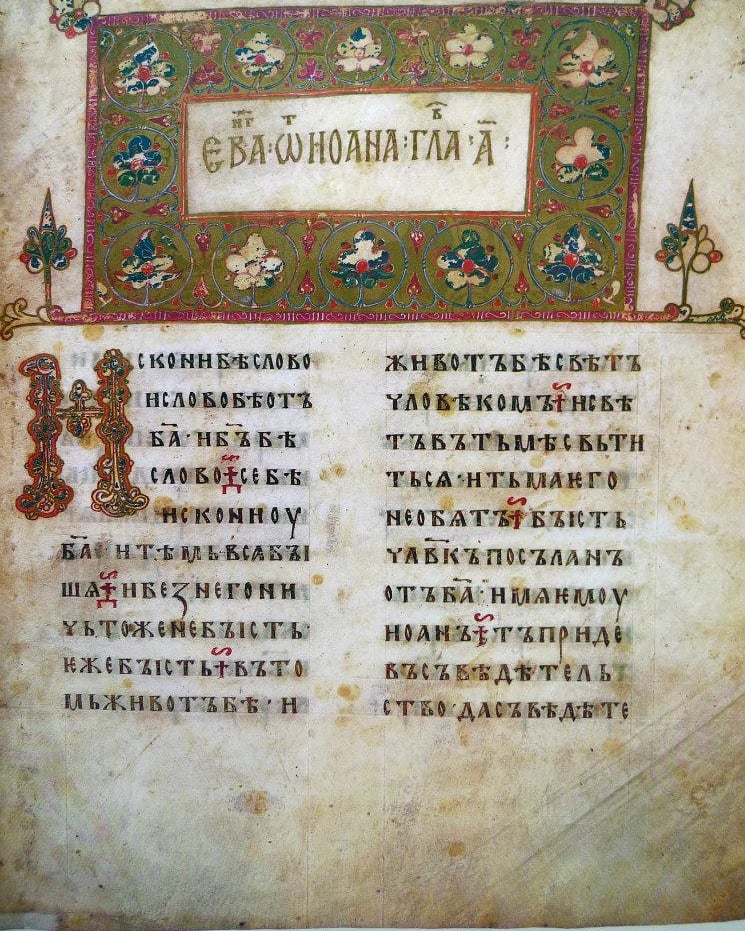 ЕВⷩ҇ГА·Ѡⷮ ИОАНА·ГЛАⷡ·А҃·
ИСКОНИБѢСЛОВО
ИСЛОВОБѢОТЪ
Б҃А·ИБ҃ЪБѢ
СЛОВО·СЕБѢ
ИСКОНИОУ
Б҃А·ИТѢМЬВСѦБЪІ
ШѦ·ИБЕЗНЕГОНИ
ЧЬТОЖЕНЕБЪІСТЬ·
ѤЖЕБЪІСТЬ·ВЪТО
МЬЖИВОТЪБѢ·И
ЖИВОТЪБѢСВѢТЪ
ЧЛОВѢКОМЪ·ИСВѢ
ТЪВЪТЬМѢСВЬТИ
ТЬСѦ·ИТЬМАѤГО
НЕОБѦТЪ·БЪІСТЬ
ЧЛ҃ВКЪПОСЪЛАНЪ
ОТЪБ҃А·ИМѦѤМОУ
ИОАНЪ·ТЪПРИДЕ
ВЪСЪВѢДѢТЕЛЬ
СТВО·ДАСЪВѢДѢТЕ